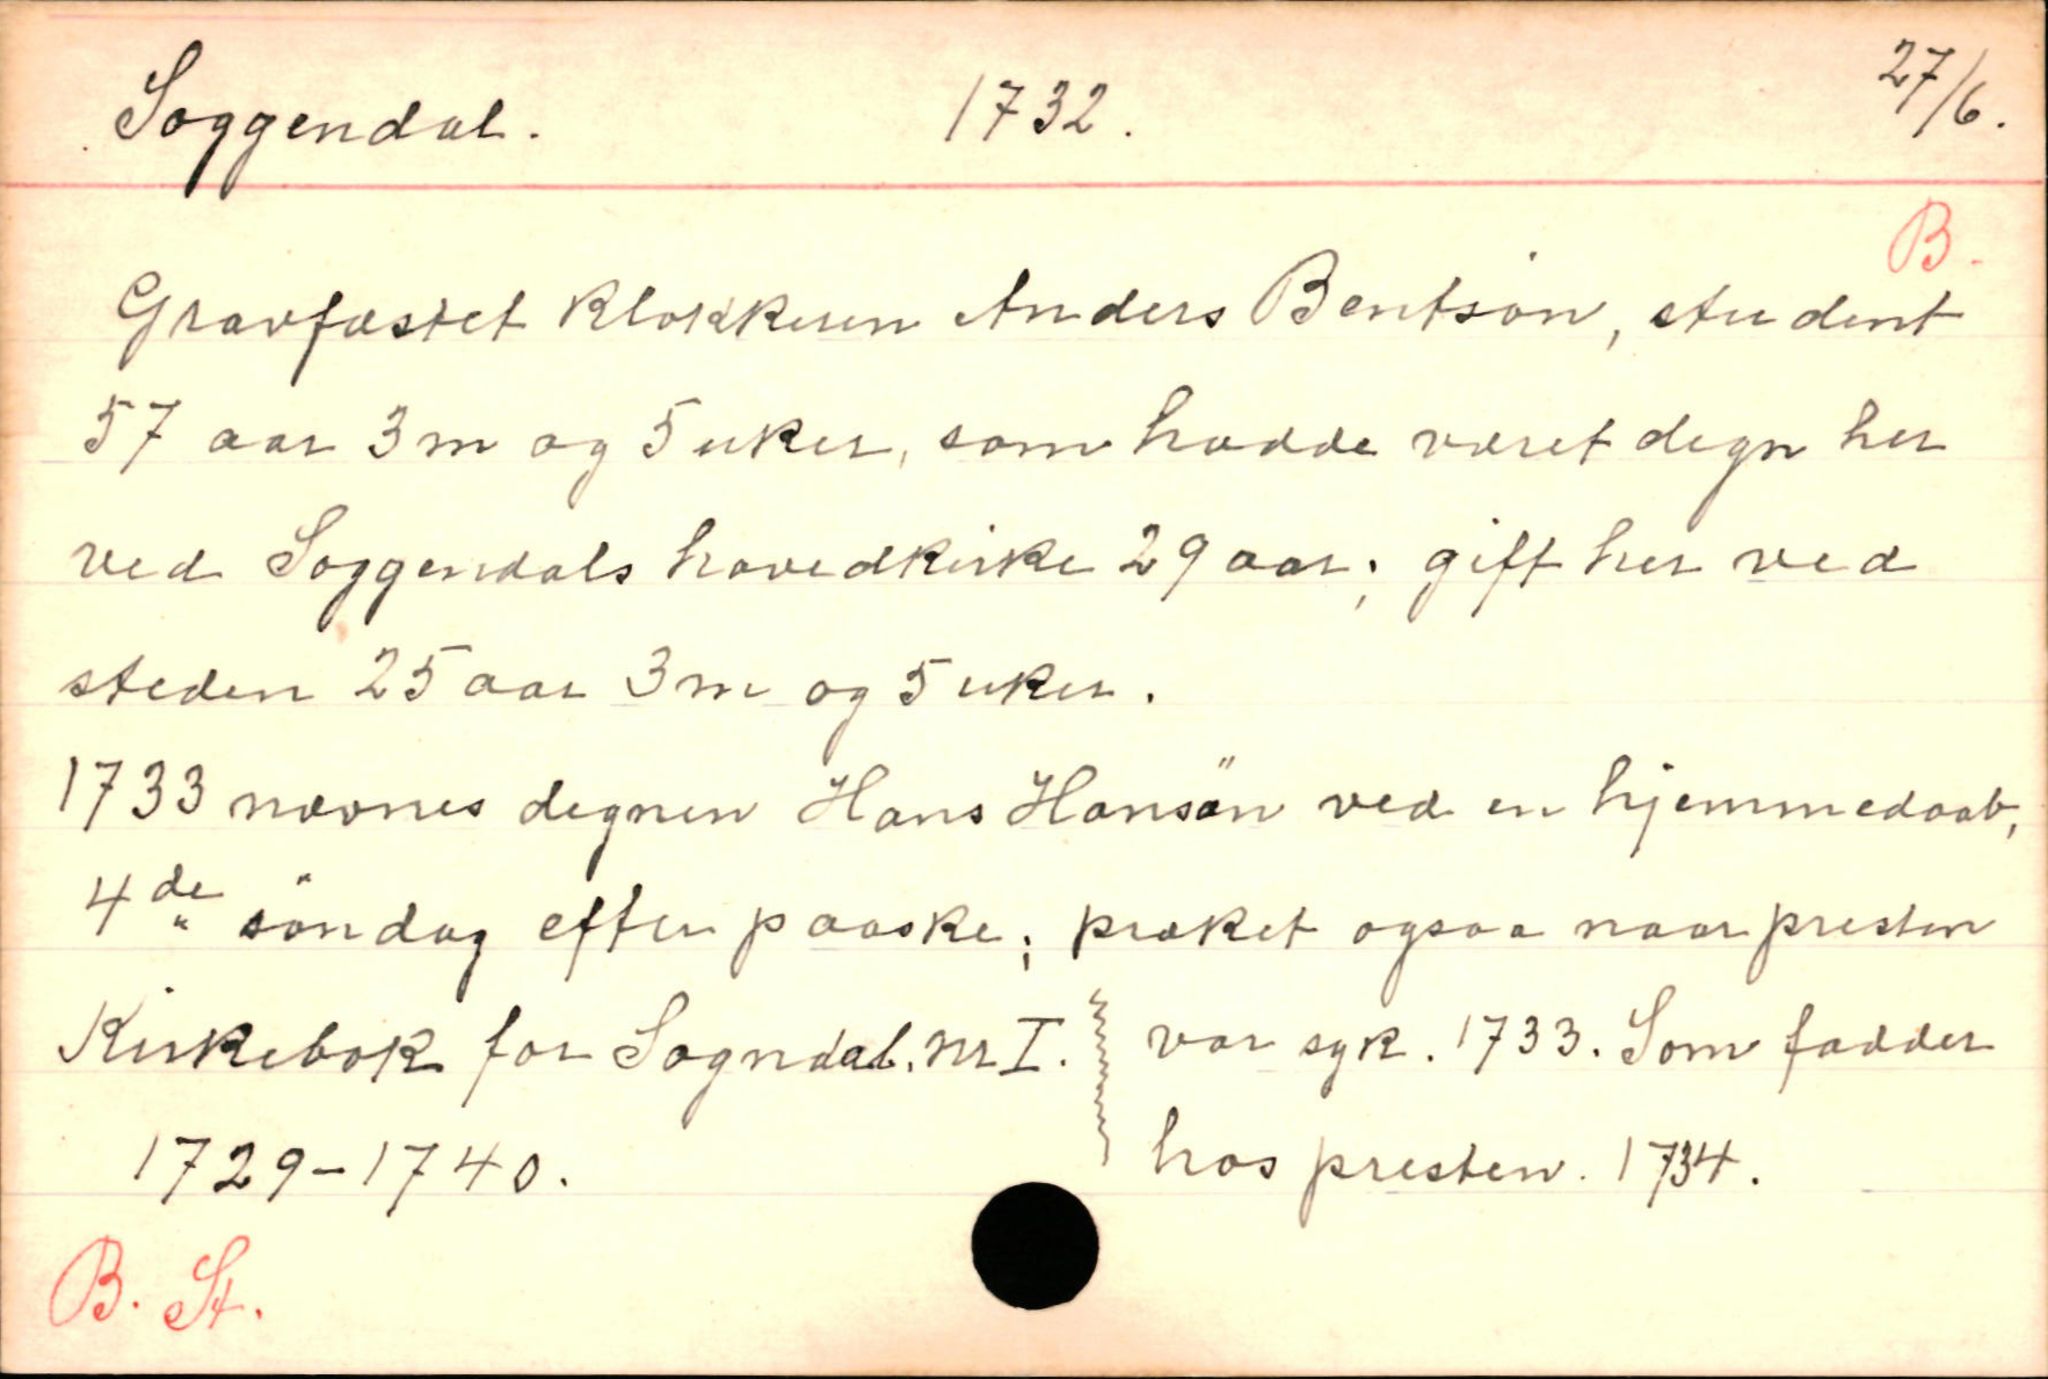 Soggendal. 1732. 27/6.
B.
Gravfæstet klokkeren Anders Bentsön, student
57 aar 3 m og 5 uker, som hadde været degn her
ved Soggendals hovedkirke 29 aar; gift her ved
steden 25 aar 3 m og 5 uker.
1733 nævnes degnen Hans Hansön ved en hjemmedaab,
4de söndag efter paaske; præket ogsaa naar presten
var syk. 1733. Som fadder
hos presten. 1734.
Kirkebok for Sogndal. nr I.
1729-1740.
B. St.